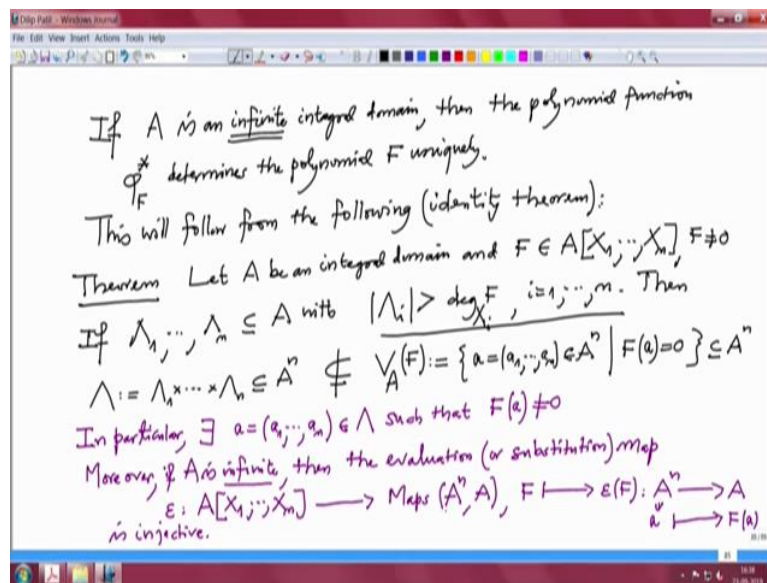 Dilip Patil - Windows Journal
File Edit View Insert Actions Tools Help
If A is an infinite integral domain, then the polynomial function
φ*_F determines the polynomial F uniquely.
This will follow from the following (identity theorem):
Theorem Let A be an integral domain and F ∈ A[X₁,…,Xₙ], F≠0
If Λ₁,…,Λₙ ⊆ A with |Λᵢ| > deg_{Xᵢ} F, i=1,…,n. Then
Λ := Λ₁×⋯×Λₙ ⊆ Aⁿ ⊄ V_A(F) := { a=(a₁,…,aₙ) ∈ Aⁿ | F(a)=0 } ⊆ Aⁿ
In particular, ∃ a=(a₁,…,aₙ) ∈ Λ such that F(a) ≠ 0
Moreover, if A is infinite, then the evaluation (or substitution) map
ε: A[X₁,…,Xₙ] ⟶ Maps (Aⁿ, A), F ⟼ ε(F): Aⁿ ⟶ A
is injective. a ⟼ F(a)